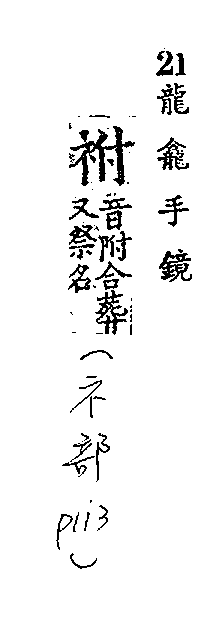 21龍龕手鏡
祔
音附合葬
又祭名
(示部
p113)